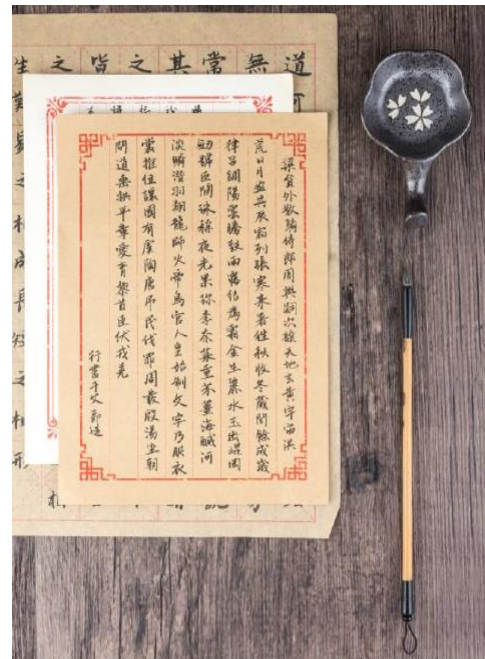 道可
無
常
其
皆
之
之
生難易之相成長短之相形
梁員外散騎侍郎周興嗣次韻天地玄黃宇宙洪
荒日月盈昃辰宿列張寒來暑往秋收冬藏閏餘成歲
律呂調陽雲騰致雨露結為霜金生麗水玉出崐岡
劒號巨闕珠稱夜光果珎李柰菜重芥薑海鹹河
淡鱗潛羽翔龍師火帝鳥官人皇始制文字乃服衣
裳推位讓國有虞陶唐弔民伐罪周發殷湯坐朝
問道垂拱平章愛育黎首臣伏戎羌
行書千文節選